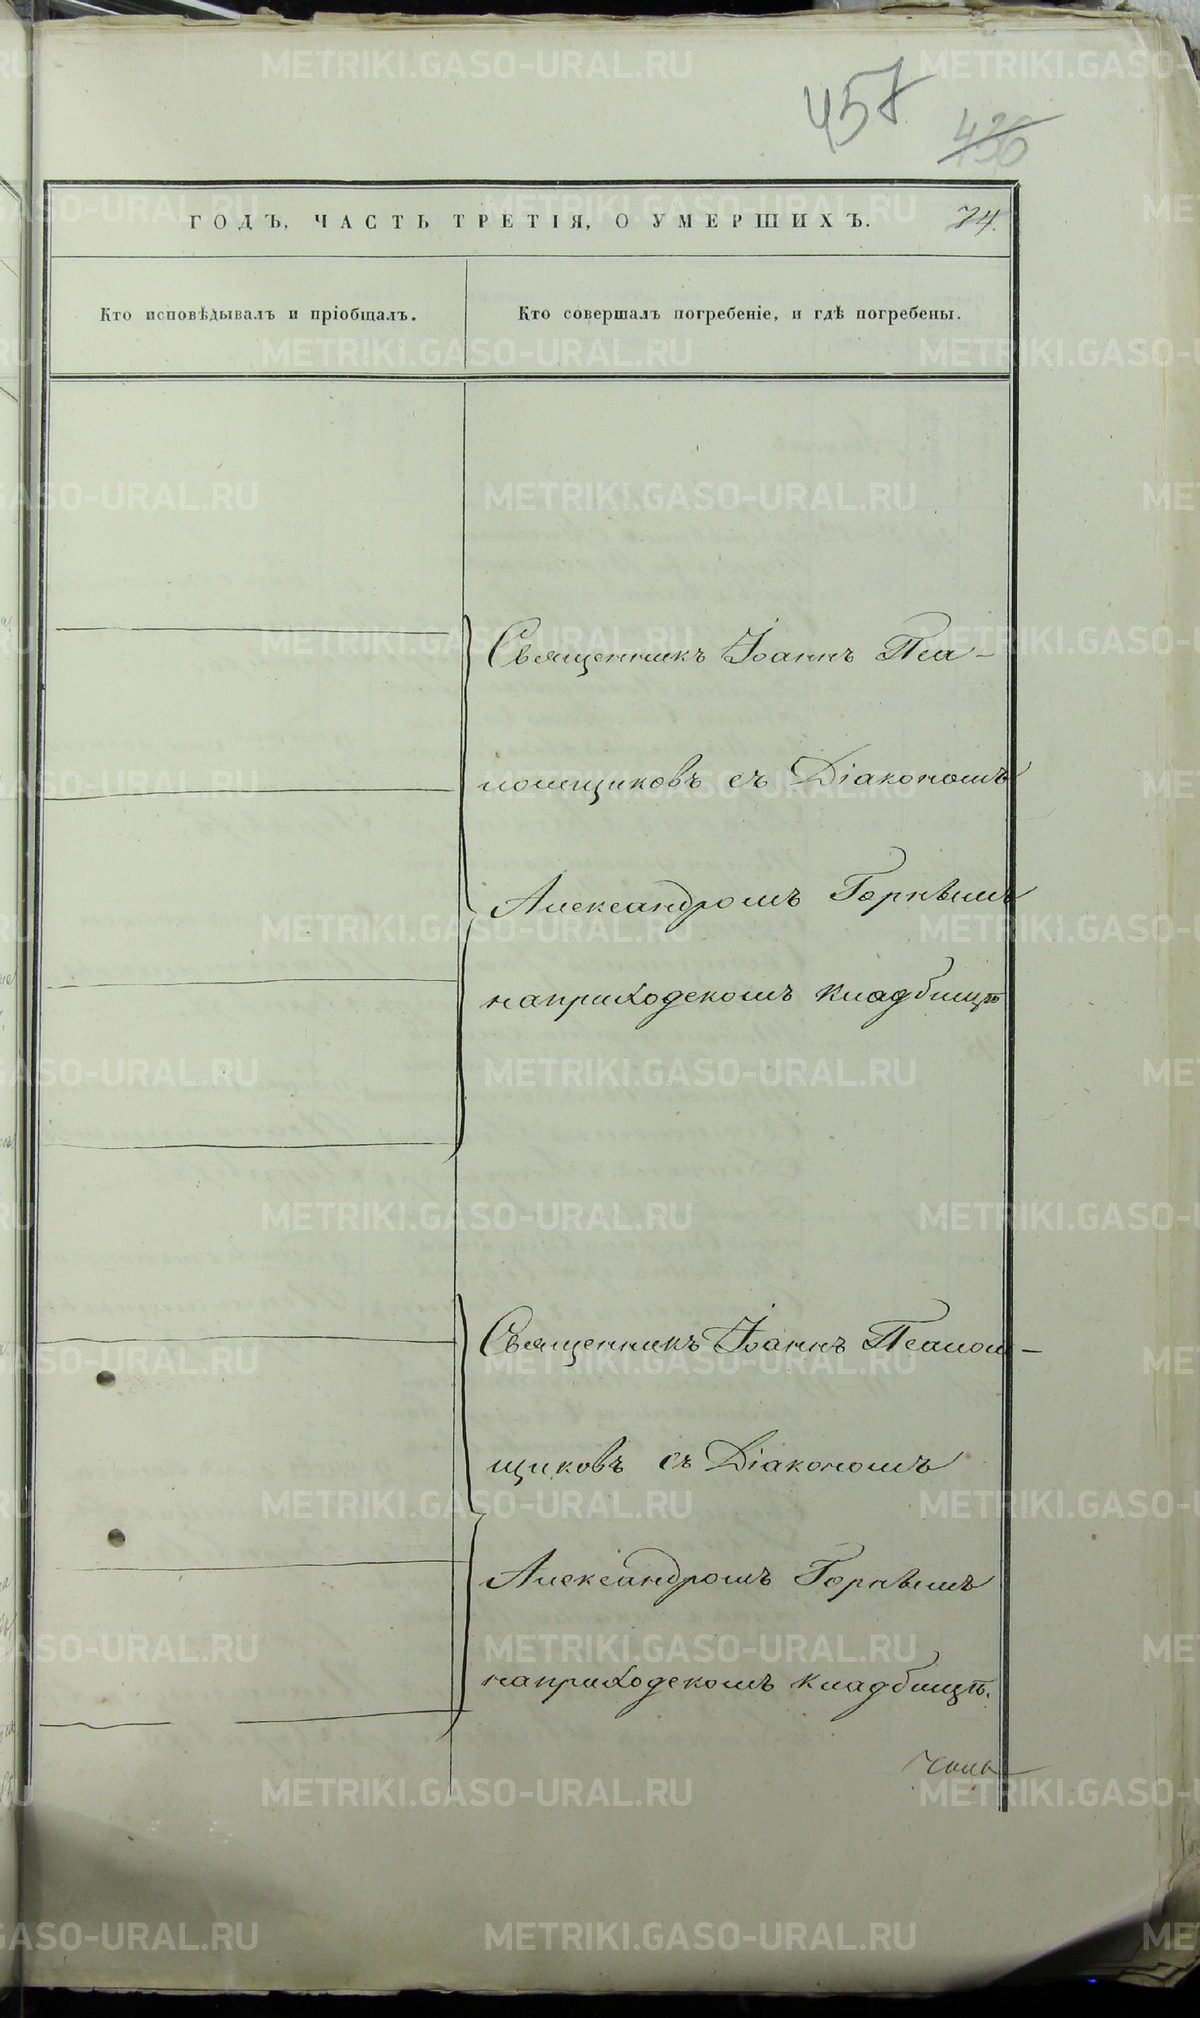 457
436
ГОДЪ, ЧАСТЬ ТРЕТІЯ, О УМЕРШИХЪ. 74.
Кто исповѣдывалъ и пріобщалъ.
Кто совершалъ погребеніе, и гдѣ погребены.
Священникъ Іоаннъ Пса-
ломщиковъ съ Діакономъ
Александромъ Горнымъ
на приходскомъ кладбищѣ
Священникъ Іоаннъ Псалом-
щиковъ съ Діакономъ
Александромъ Горнымъ
на приходскомъ кладбищѣ.
METRIKI.GASO-URAL.RU